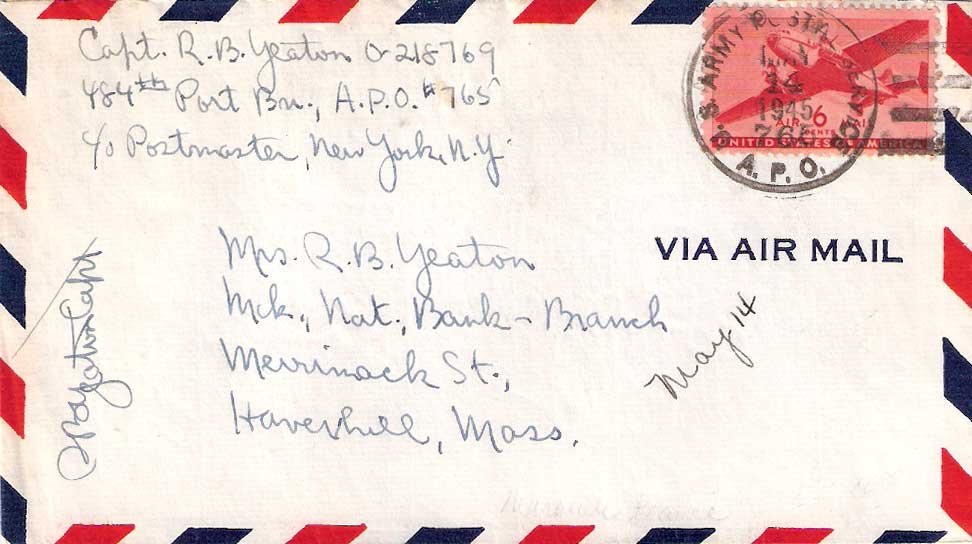 Capt. R. B. Yeaton O-218769
484th Port Bn., A.P.O. #765
c/o Postmaster, New York, N.Y.
U.S. ARMY POSTAL SERVICE
14
1945
765
A. P. O.
AIR 6
CENTS
UNITED STATES OF AMERICA
VIA AIR MAIL
Mrs. R. B. Yeaton
Mck., Nat., Bank - Branch
Merrimack St.,
Haverhill, Mass.
May 14
RBYeaton Capt
France